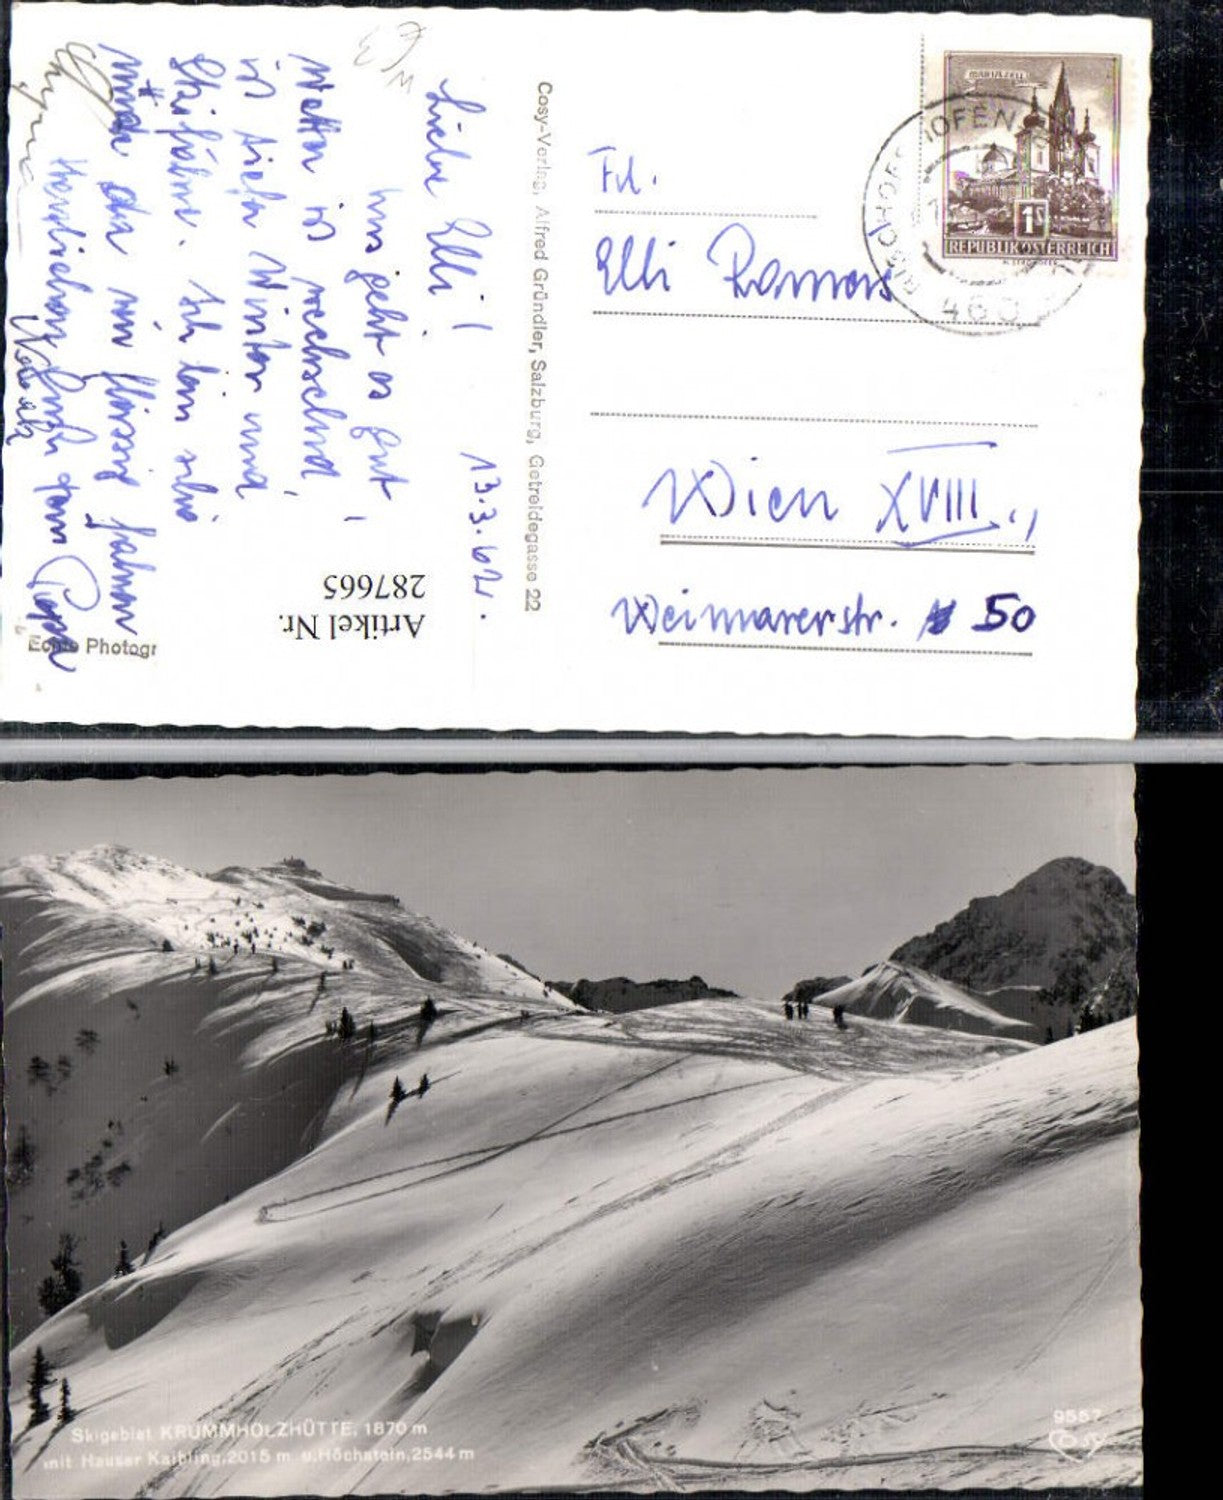 Liebe Elli!
13.3.62.
Uns geht es gut,
Wetter ist wechselnd,
ist tiefer Winter und
Ski fahren. Ich bin schon
müde den nur fleissig fahren
Herzlichen Gruß vom Papa
Artikel Nr.
287665
Echte Photogr
Cosy-Verlag, Alfred Gründler, Salzburg, Getreidegasse 22
MARIAZELL
1S
REPUBLIK ÖSTERREICH
BISCHOFSHOFEN
Frl.
Elli Roman
Wien XVIII.,
Weimarerstr. 50
Skigebiet KRUMMHOLZHÜTTE, 1870 m
mit Hauser Kaibling, 2015 m u. Höchstein, 2544 m
9557
Cosy